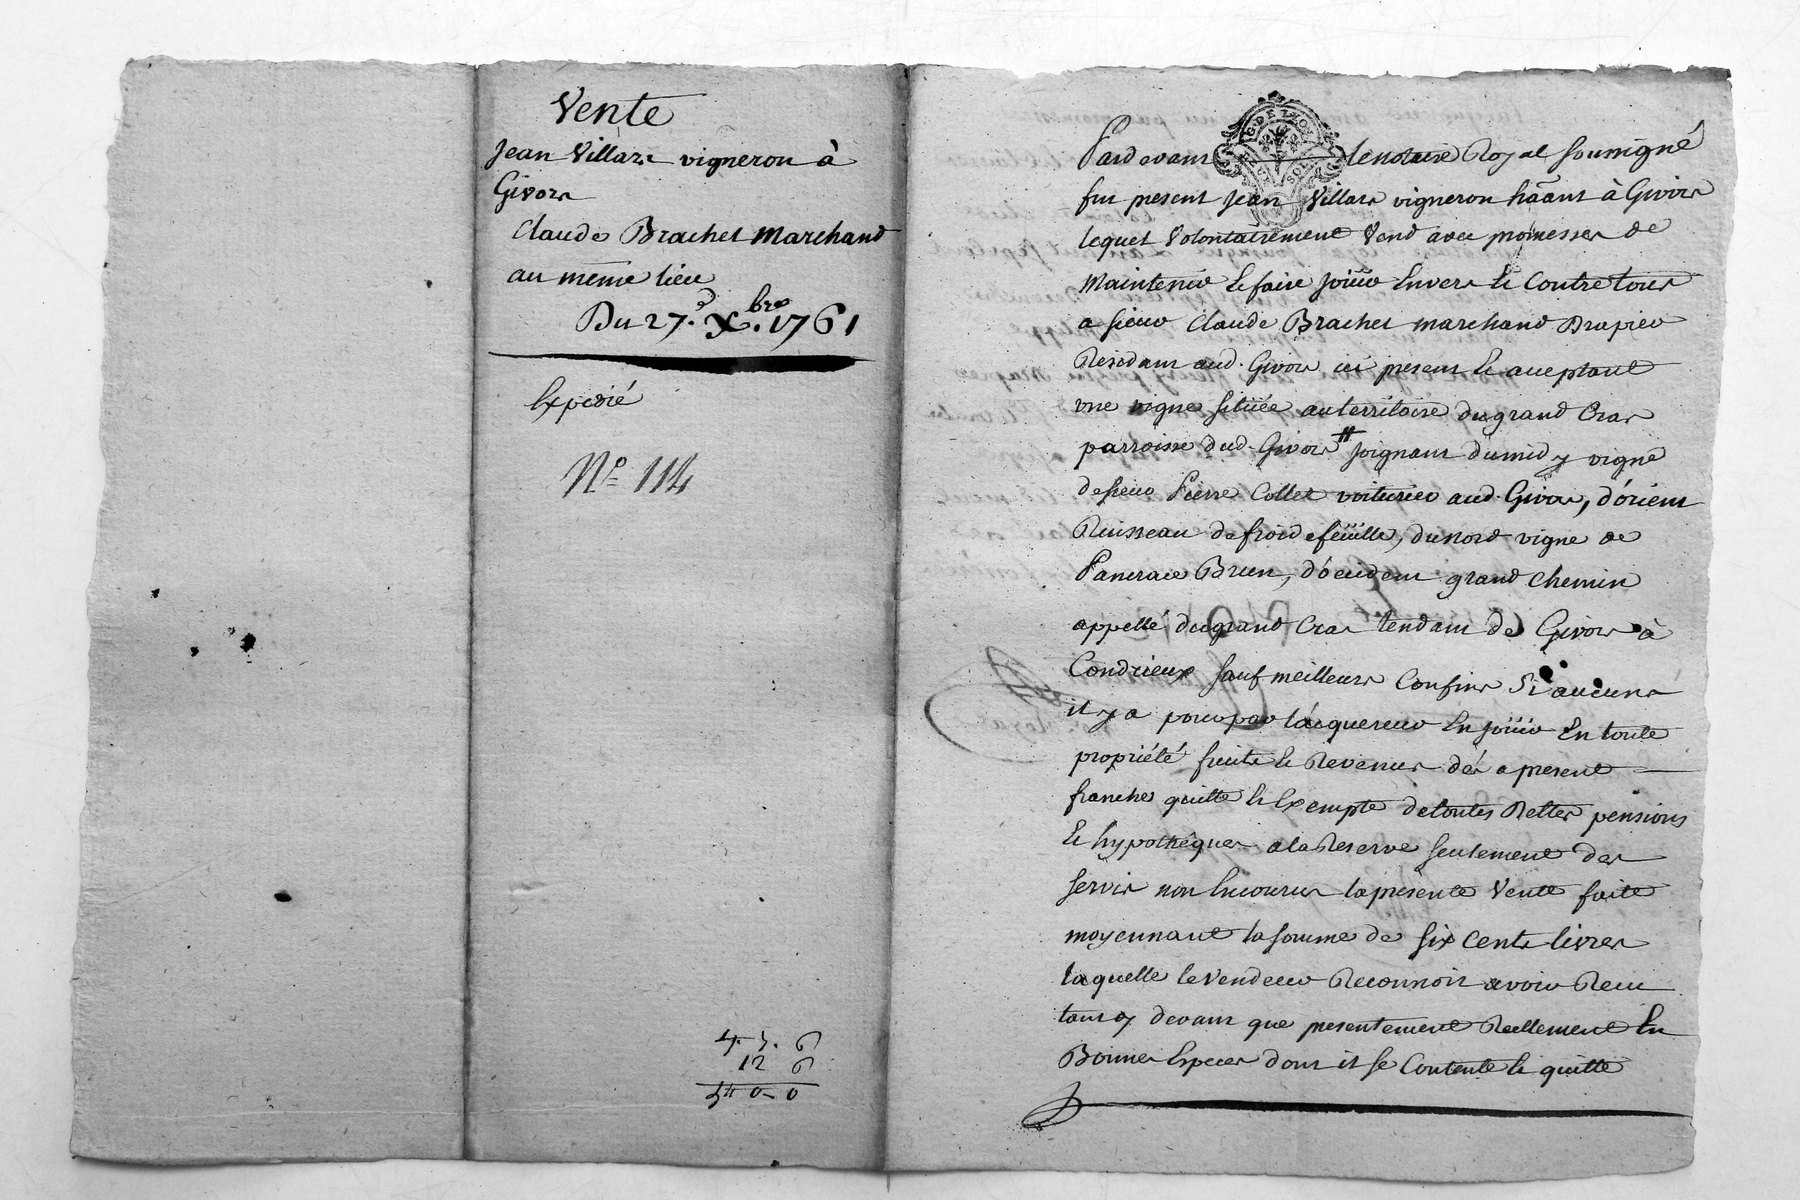 Vente
Jean Villars vigneron à
Givors
Claude Brachet Marchand
au même lieu
Du 27.e Xbre. 1761
Expedié
N° 114
4. 7. 6
12 6
5tt 0 - 0
G. DE LYON
SOLS
Pardevant le notaire Royal soussigné
fut present Jean Villars vigneron ha͠ant à Givors
lequel volontairement vend avec promesses de
maintenir et faire joüir envers et contre tous
a sieur Claude Brachet marchand Drapier
Residant aud. Givors ici present et acceptant
une vigne sitüée au territoire du grand Cras
parroisse dud. Givors # joignant du midy vigne
de sieur Pierre Collet voiturier aud. Givors, d'orient
Ruisseau de froidefeüille, du nord vigne de
Pancrace Brun, d'occident grand chemin
appellé du grand Cras tendant de Givors à
Condrieux sauf meilleurs confins si aucuns
il y a pour par l'acquereur en joüir en toute
propriété fruits et Revenus dés a present
franche quitte et exempte de toutes dettes pensions
et hypothêques a la Reserve seulement des
servis non encourus la presente vente faite
moyennant la somme de six cents livres
laquelle le vendeur Reconnoit avoir Reçu
tant cy devant que presentement Reellement en
Bonnes especes dont il se contente et quitte